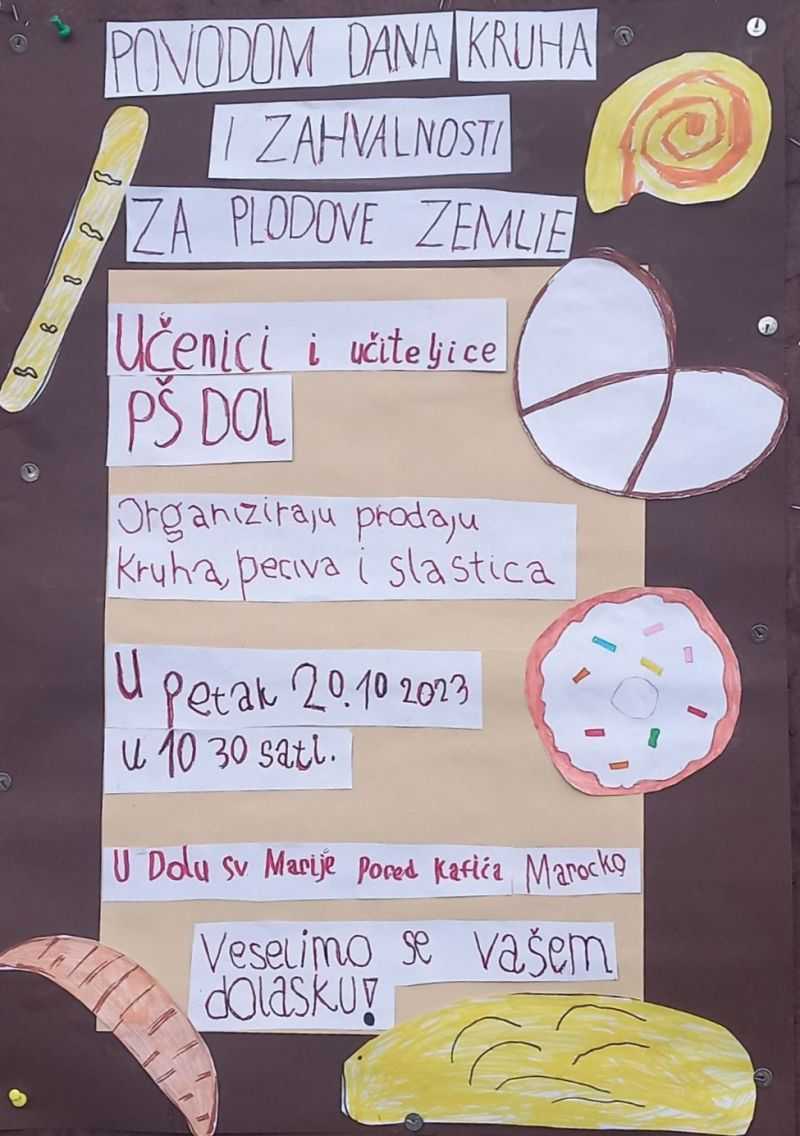 POVODOM DANA KRUHA
I ZAHVALNOSTI
ZA PLODOVE ZEMLJE
Učenici i učiteljice
PŠ DOL
Organiziraju prodaju
kruha, peciva i slastica
U petak 20.10 2023
u 10 30 sati.
U Dolu sv Marije pored kafića Marocko
Veselimo se vašem
dolasku!